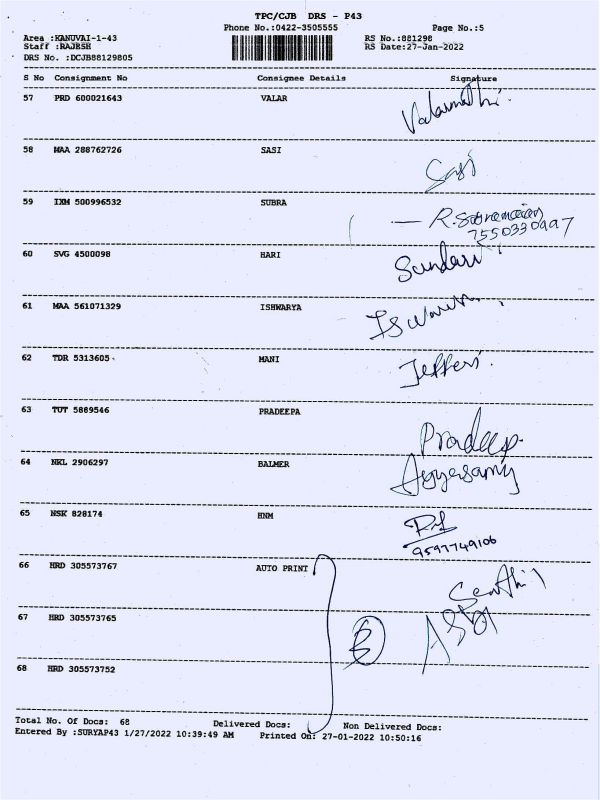 TPC/CJB DRS - P43
Phone No.:0422-3505555 Page No.:5
Area :KANUVAI-1-43 RS No.:881298
Staff :RAJESH RS Date:27-Jan-2022
DRS No. :DCJB88129805
S No Consignment No Consignee Details Signature
57 PRD 600021643 VALAR Valarmathi.
58 MAA 288762726 SASI Sasi
59 IXM 500996532 SUBRA R.Subramanian
7550330997
60 SVG 4500098 HARI Sundari
61 MAA 561071329 ISHWARYA
62 TDR 5313605 MANI Jefferi.
63 TUT 5889546 PRADEEPA Pradeep.
64 NKL 2906297 BALMER Ayyasamy
65 NSK 828174 HNM
9597749106
66 HRD 305573767 AUTO PRINT Senthil
67 HRD 305573765
68 HRD 305573752
Total No. Of Docs: 68 Delivered Docs: Non Delivered Docs:
Entered By :SURYAP43 1/27/2022 10:39:49 AM Printed On: 27-01-2022 10:50:16